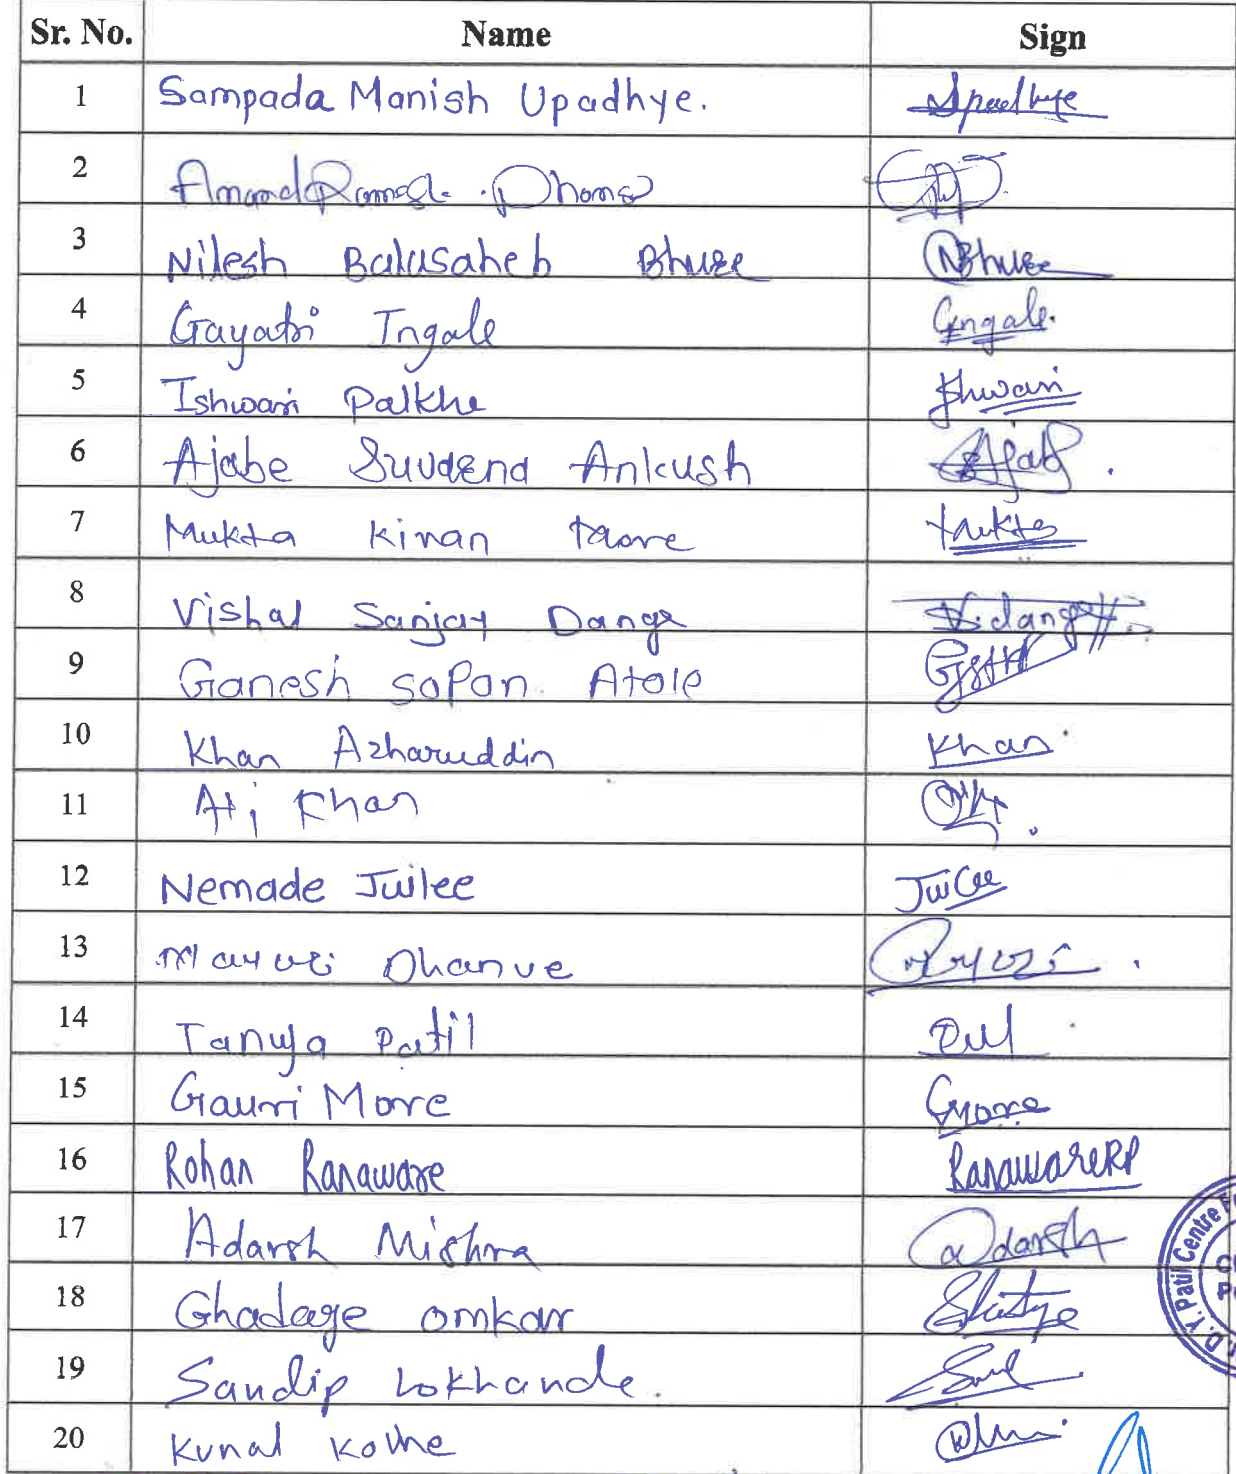 Sr. No. Name Sign
1 Sampada Manish Upadhye. Upadhye
2 Anand Ramesh Dhome
3 Nilesh Balasaheb Bhuse NBhuse
4 Gayatri Ingale Gingale.
5 Ishwari Palkhe Ishwari
6 Ajabe Suvarna Ankush Ajab
7 Mukta Kiran taore Mukta
8 Vishal Sanjay Dange V.dange
9 Ganesh sopan Atole
10 Khan Azharuddin Khan
11 Khan
12 Nemade Juilee Juilee
13 Mayuri Dhanve Mayuri
14 Tanuja Patil
15 Gauri More Gmore
16 Rohan Ranaware RanawareRP
17 Adarsh Mishra Adarsh
18 Ghadage omkar
19 Sandip Lokhande.
20 Kunal Kolhe
D. Y. Patil Centre